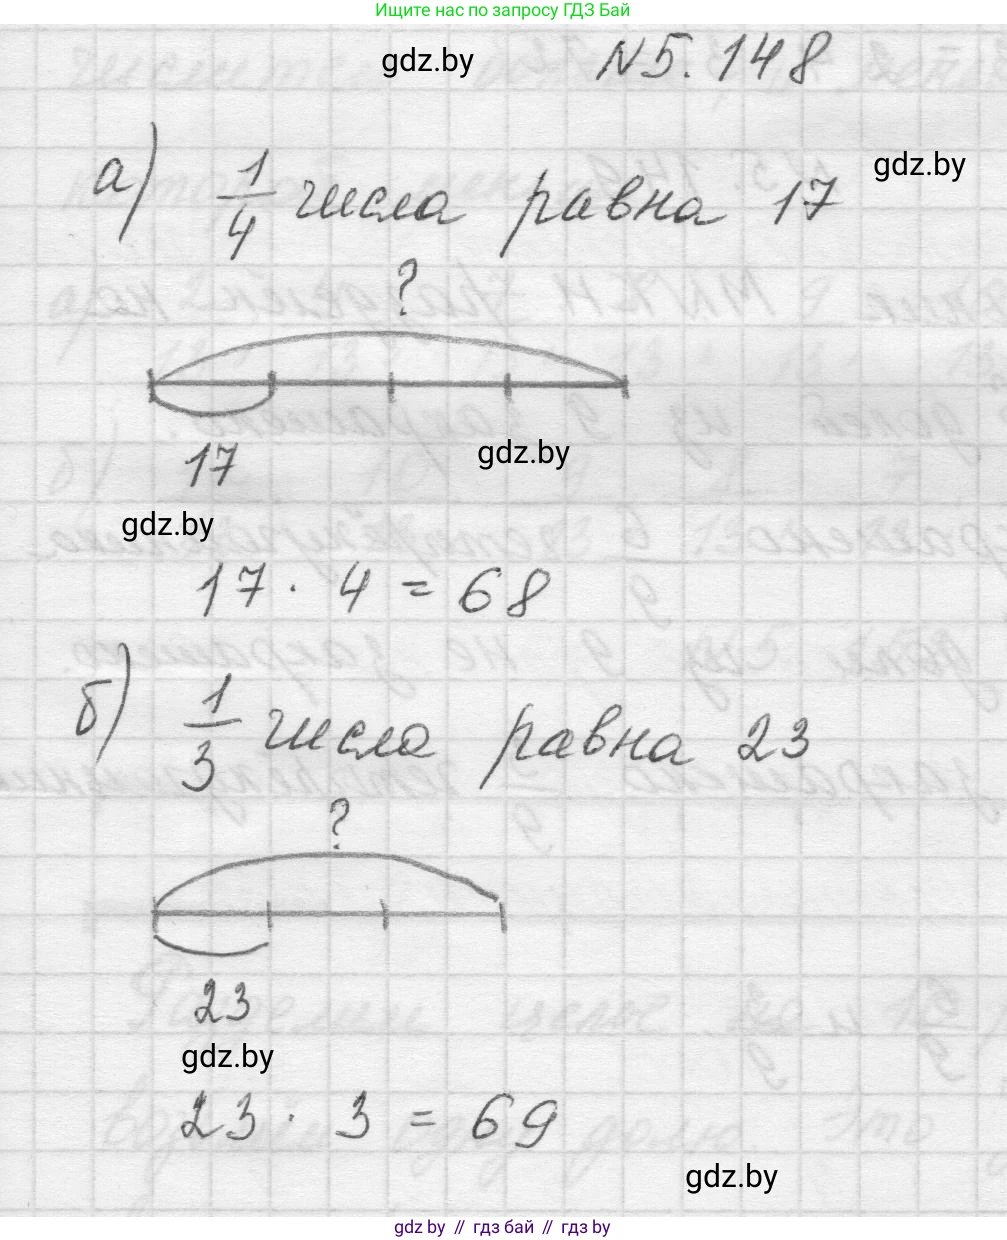 Ищите нас по запросу ГДЗ Бай
gdz.by
N5.148
gdz.by
а) 1/4 числа равна 17
?
17
gdz.by
gdz.by
17 · 4 = 68
б) 1/3 числа равна 23
?
23
gdz.by
23 · 3 = 69
gdz.by
gdz by // гдз бай // гдз by